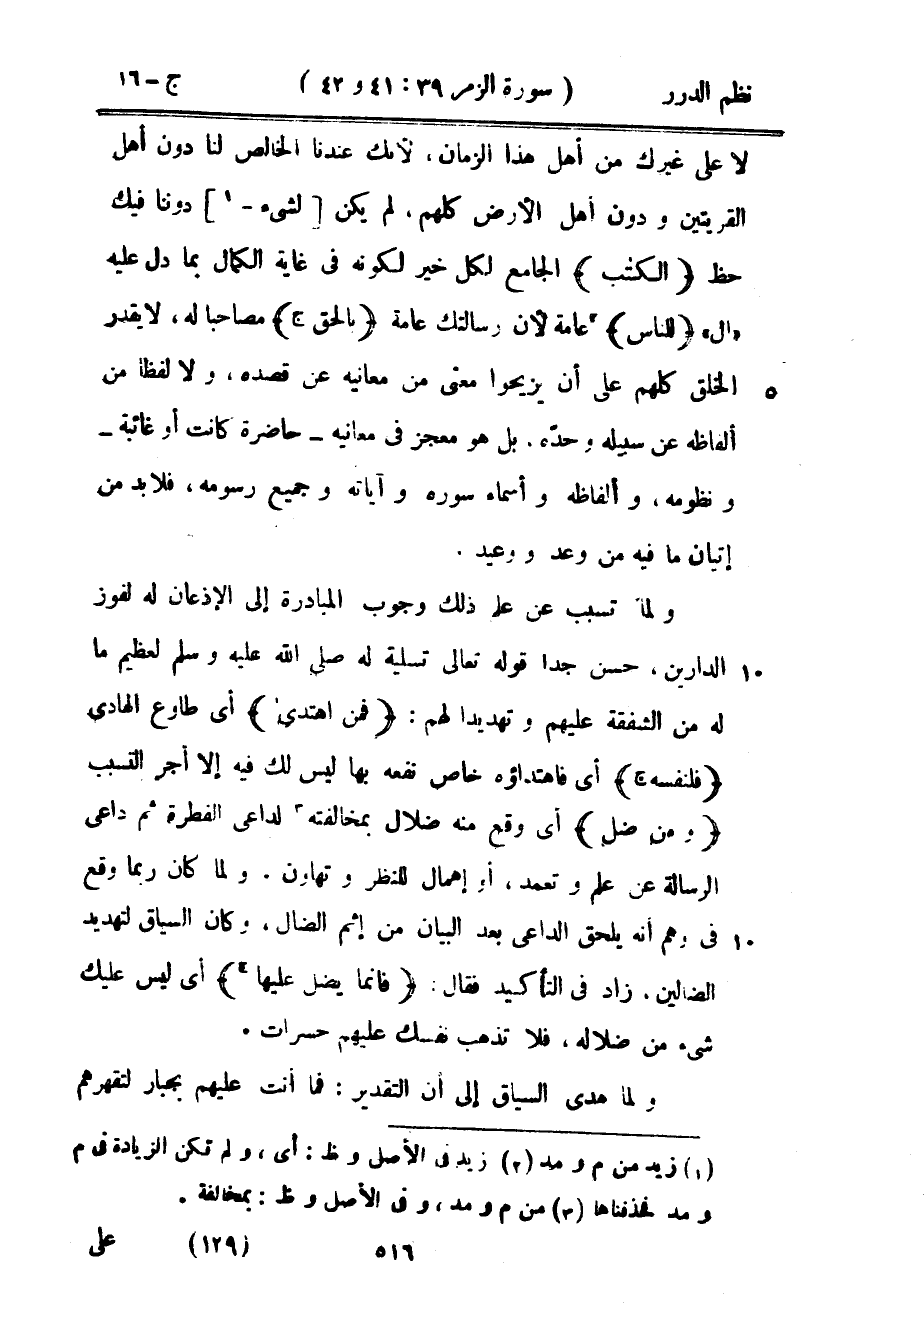 نظم الدرر ( سورة الزمر ٣٩ : ٤١ و ٤٢ ) ج – ١٦
لا على غيرك من أهل هذا الزمان، لأنك عندنا الخالص لنا دون أهل
القريتين و دون أهل الأرض كلهم، لم يكن [ لشيء - ١ ] دوننا فيك
حظ ﴿ الكتب ﴾ الجامع لكل خير لكونه فى غاية الكمال بما دل عليه
«ال» ﴿ للناس ﴾ ٢عامة لأن رسالتك عامة ﴿ بالحق ج﴾ مصاحبا له، لا يقدر
الخلق كلهم على أن يزيحوا معنى من معانيه عن قصده، و لا لفظا من ٥
ألفاظه عن سبيله و حدّه، بل هو معجز فى معانيه – حاضرة كانت أو غائبة –
و نظومه، و ألفاظه و أسماء سوره و آياته و جميع رسومه، فلابد من
إتيان ما فيه من وعد و وعيد .
و لما تسبب عن علم ذلك وجوب المبادرة إلى الإذعان له لفوز
الدارين، حسن جدا قوله تعالى تسلية له صلى الله عليه و سلم لعظيم ما ١٠
له من الشفقة عليهم و تهديدا لهم : ﴿ فمن اهتدى ﴾ أى طاوع الهادي
﴿ فلنفسه ج﴾ أى فاهتداؤه خاص نفعه بها ليس لك فيه إلا أجر التسبب
﴿ و من ضل ﴾ أى وقع منه ضلال بمخالفته ٣ لداعى الفطرة ثم داعى
الرسالة عن علم و تعمد، أو إهمال للنظر و تهاون . و لما كان ربما وقع
فى وهم أنه يلحق الداعى بعد البيان من إثم الضال، وكان السياق لتهديد ١٠
الضالين، زاد فى التأكيد فقال : ﴿ فانما يضل عليها ٤﴾ أى ليس عليك
شيء من ضلاله، فلا تذهب نفسك عليهم حسرات .
و لما هدى السياق إلى أن التقدير : فما أنت عليهم بجبار لتقهرهم
(١) زيد من م و مد (٢) زيد فى الأصل و ظ : أى، و لم تكن الزيادة فى م
و مد فحذفناها (٣) من م و مد، و فى الأصل و ظ : بمخالفة .
٥١٦ (١٢٩) على